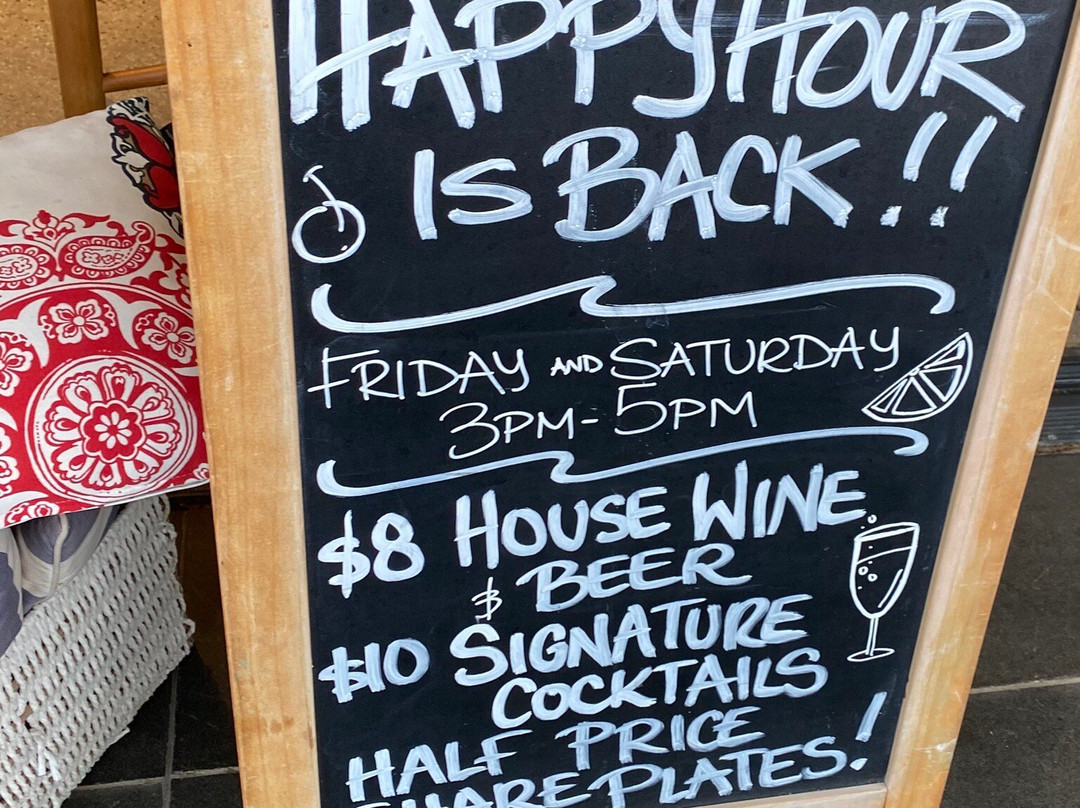 HAPPY HOUR
IS BACK!!
FRIDAY AND SATURDAY
3PM-5PM
$8 HOUSE WINE
& BEER
$10 SIGNATURE
COCKTAILS
HALF PRICE
SHARE PLATES!